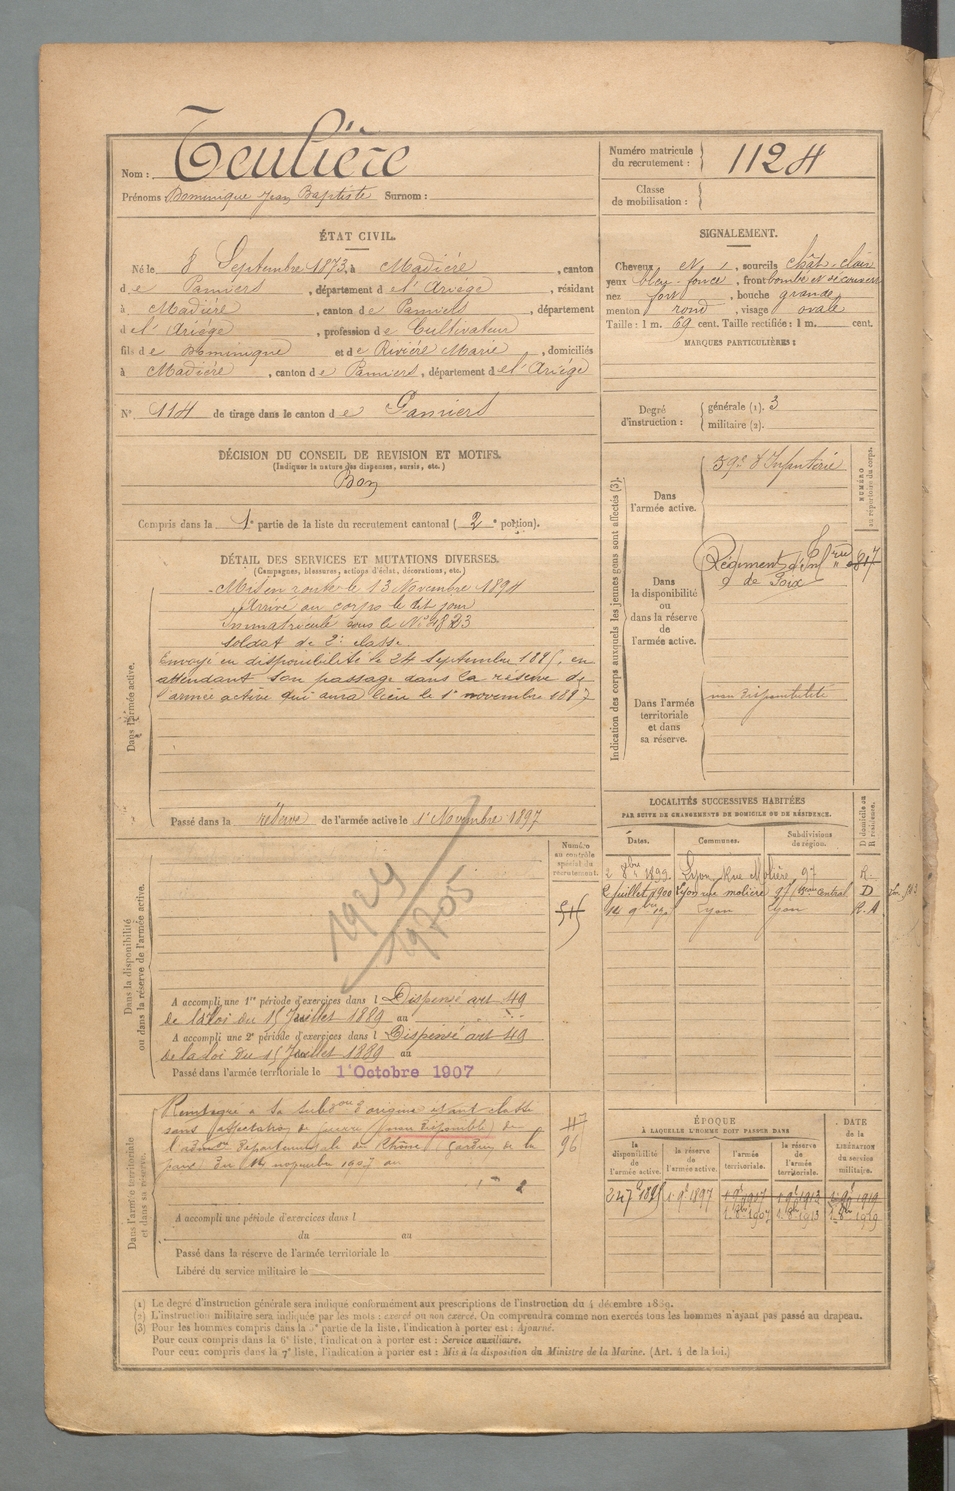 Nom : Teulière
Prénoms Dominique Jean Baptiste Surnom :
Numéro matricule du recrutement : 1124
Classe de mobilisation :
ÉTAT CIVIL.
Né le 8 Septembre 1873, à Madière, canton
de Pamiers, département de l'Ariège, résidant
à Madière, canton de Pamiers, département
de l'Ariège, profession de Cultivateur
fils de Dominique et de Rivière Marie, domiciliés
à Madière, canton de Pamiers, département de l'Ariège
N° 114 de tirage dans le canton de Pamiers
SIGNALEMENT.
Cheveux N 1, sourcils chât-clair
yeux bleu-foncé, front bombé et découvert
nez fort, bouche grande
menton rond, visage ovale
Taille : 1 m. 69 cent. Taille rectifiée : 1 m. cent.
MARQUES PARTICULIÈRES :
Degré d'instruction : générale (1). 3
militaire (2).
DÉCISION DU CONSEIL DE REVISION ET MOTIFS.
(Indiquer la nature des dispenses, sursis, etc.)
Bon
Compris dans la 1e partie de la liste du recrutement cantonal ( 2e portion).
DÉTAIL DES SERVICES ET MUTATIONS DIVERSES.
(Campagnes, blessures, actions d'éclat, décorations, etc.)
Dans l'armée active.
Mis en route le 13 Novembre 1894
Arrivé au corps le dit jour
Immatriculé sous le N° 4823
soldat de 2e classe.
Envoyé en disponibilité le 24 Septembre 1895, en
attendant son passage dans la réserve de
l'armée active qui aura lieu le 1er novembre 1897
Passé dans la réserve de l'armée active le 1er Novembre 1897
Indication des corps auxquels les jeunes gens sont affectés (3).
NUMÉRO au répertoire du corps.
Dans l'armée active.
59e d'Infanterie
Dans la disponibilité ou dans la réserve de l'armée active.
Régiment d'Inf
de Foix
Dans l'armée territoriale et dans sa réserve.
non disponibilité
LOCALITÉS SUCCESSIVES HABITÉES
PAR SUITE DE CHANGEMENTS DE DOMICILE OU DE RÉSIDENCE.
Dates. Communes. Subdivisions de région. D domicile ou R résidence.
2 8bre 1899 Lyon, Rue Molière 97 R.
2 Juillet 1900 Lyon rue molière 97 Central D
14 9bre Lyon Lyon R.A
Dans la disponibilité ou dans la réserve de l'armée active.
Numéro au contrôle spécial du recrutement.
1929
19705
A accompli une 1re période d'exercices dans l Dispensé art 49
de la loi du 15 Juillet 1889 au
A accompli une 2e période d'exercices dans l Dispensé art 49
de la loi du 15 Juillet 1889 au
Passé dans l'armée territoriale le 1er Octobre 1907
Dans l'armée territoriale et dans sa réserve.
à sa subdon d'origine
sans affectation de guerre (non disponible) de
Départementale du Rhône Gardien de la
paix du 14 novembre 1907 au
47
96
A accompli une période d'exercices dans l
du au
Passé dans la réserve de l'armée territoriale le
Libéré du service militaire le
ÉPOQUE
À LAQUELLE L'HOMME DOIT PASSER DANS
la disponibilité de l'armée active. la réserve de l'armée active. l'armée territoriale. la réserve de l'armée territoriale. DATE de la LIBÉRATION du service militaire.
24 7e 1895 1er 9e 1897 1er 9e 1907 1er 9e 1913 1er 9e 1919
1er 8bre 1907 1er 8bre 1913 1er 8bre 1919
(1) Le degré d'instruction générale sera indiqué conformément aux prescriptions de l'instruction du 4 décembre 1889.
(2) L'instruction militaire sera indiquée par les mots : exercé ou non exercé. On comprendra comme non exercés tous les hommes n'ayant pas passé au drapeau.
(3) Pour les hommes compris dans la 5e partie de la liste, l'indication à porter est : Ajourné.
Pour ceux compris dans la 6e liste, l'indication à porter est : Service auxiliaire.
Pour ceux compris dans la 7e liste, l'indication à porter est : Mis à la disposition du Ministre de la Marine. (Art. 4 de la loi.)